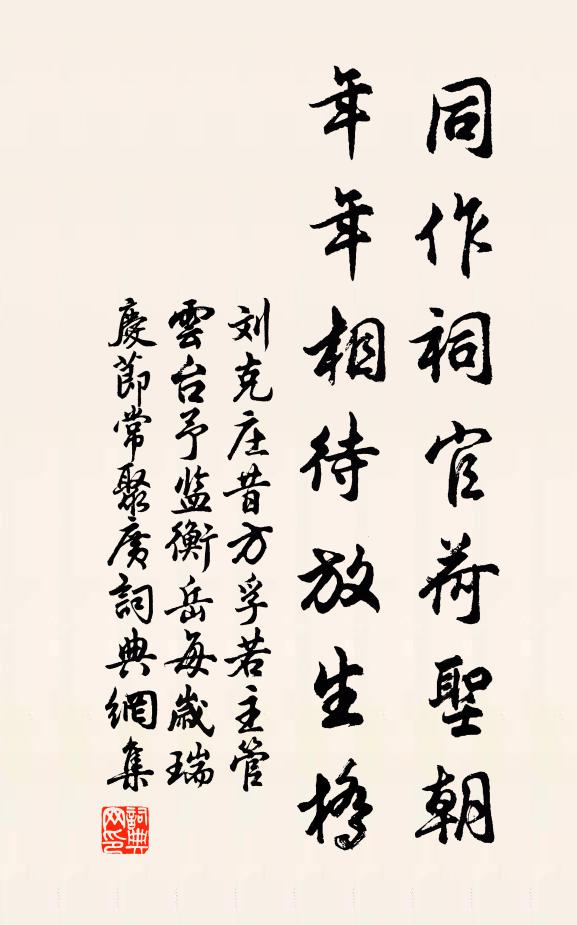 同作祠官荷聖朝
年年相待放生橋
刘克庄昔方孚若主管
雲台予监衡岳每歲瑞
慶節常聚廣詞典網集
詞典
网印